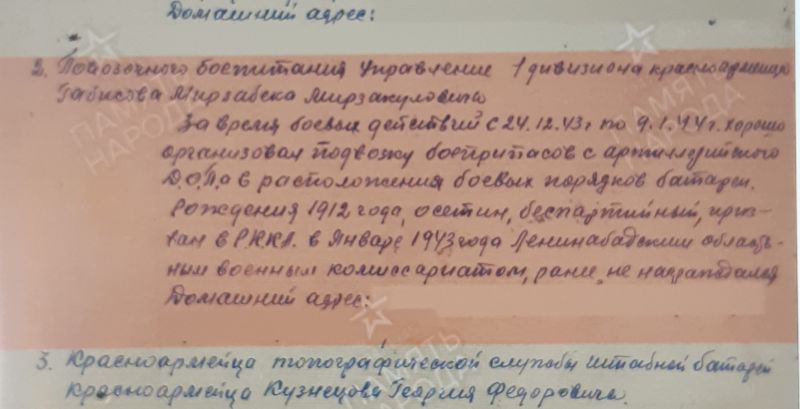 Домашний адрес:
2. Повозочного боепитания Управление 1 дивизиона красноармейца
Габисова Мирзабека Мирзакуловича
За время боевых действий с 24.12.43г по 9.1.44г. хорошо
организовал подвозку боеприпасов с артиллерийского
Д.О.Па в расположения боевых порядков батареи.
Рождения 1912 года, осетин, беспартийный, приз-
ван в Р.К.К.А. в Январе 1943 года Ленинабадским област-
ным военным комиссариатом, ранее не награждался
Домашний адрес:
3. Красноармейца топографической службы штабной батареи
красноармейца Кузнецова Георгия Федоровича.
ПАМЯТЬ
НАРОДА
ПАМЯТЬ
НАРОДА
ПАМЯТЬ
НАРОДА